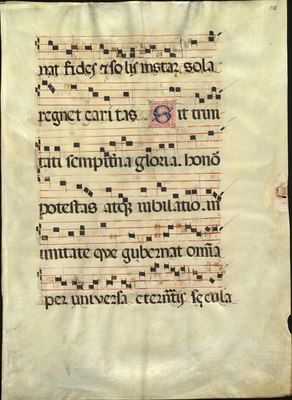 nat fides et solis instar sola
regnet caritas Sit trini
tati sempiterna gloria. hono
potestas atqꝫ iubilatio. in
unitate que gubernat omnia
per universa eternitis secula